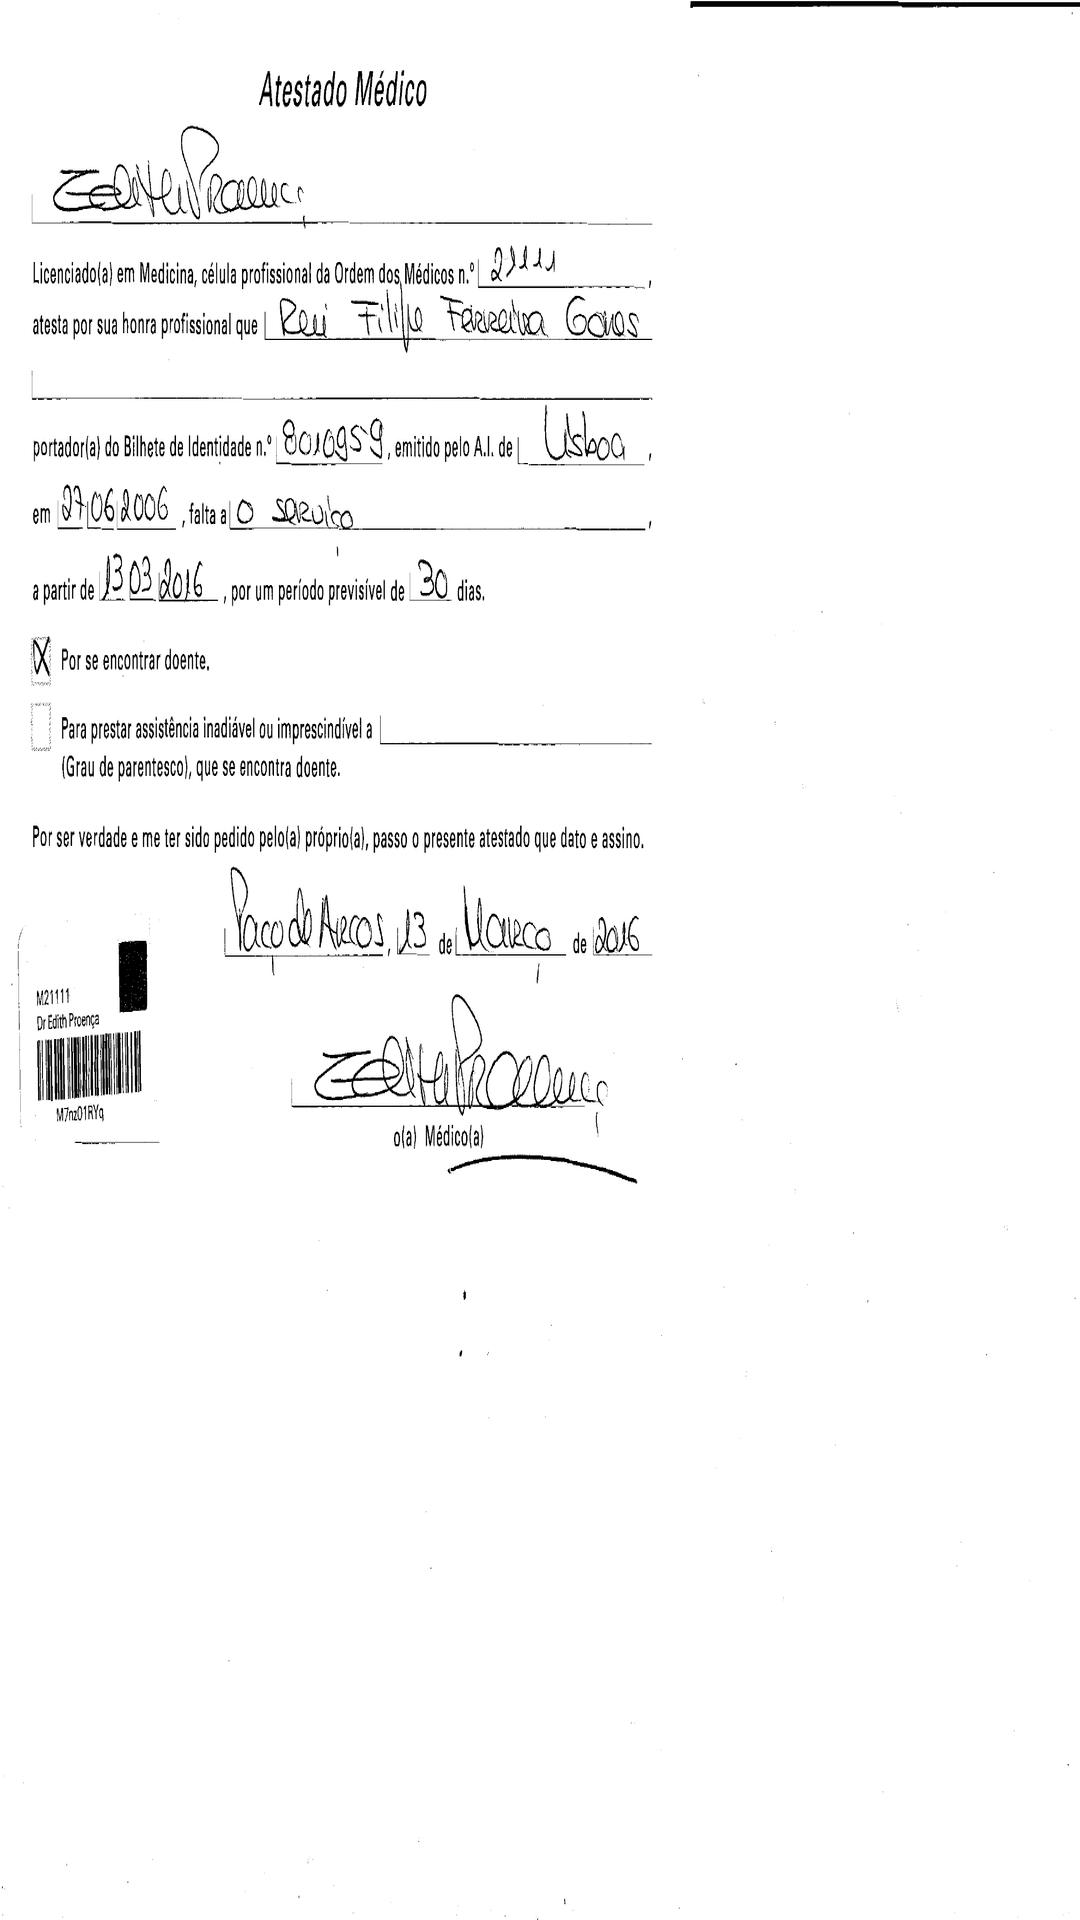 Atestado Médico
Edith Proença
Licenciado(a) em Medicina, célula profissional da Ordem dos Médicos n.º 21111,
atesta por sua honra profissional que Rui Filipe Ferreira
portador(a) do Bilhete de Identidade n.º 8010959, emitido pelo A.I. de Lisboa,
em 27 06 2006, falta a o serviço,
a partir de 13 03 2016, por um período previsível de 30 dias.
X Por se encontrar doente.
Para prestar assistência inadiável ou imprescindível a
(Grau de parentesco), que se encontra doente.
Por ser verdade e me ter sido pedido pelo(a) próprio(a), passo o presente atestado que dato e assino.
Paço de Arcos, 13 de Março de 2016
M21111
Dr Edith Proença
M7nz01RYq
Edith Proença
o(a) Médico(a)